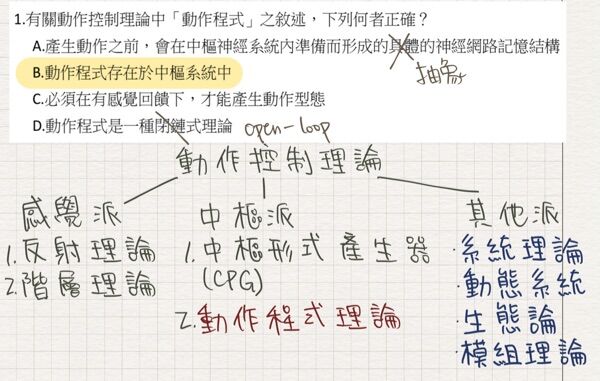 1.有關動作控制理論中「動作程式」之敘述，下列何者正確？
A.產生動作之前，會在中樞神經系統內準備而形成的具體的神經網路記憶結構
B.動作程式存在於中樞系統中
抽象
C.必須在有感覺回饋下，才能產生動作型態
D.動作程式是一種閉鏈式理論 open-loop
動作控制理論
感覺派
1.反射理論
2.階層理論
中樞派
1.中樞形式產生器
(CPG)
2.動作程式理論
其他派
·系統理論
·動態系統
·生態論
·模組理論